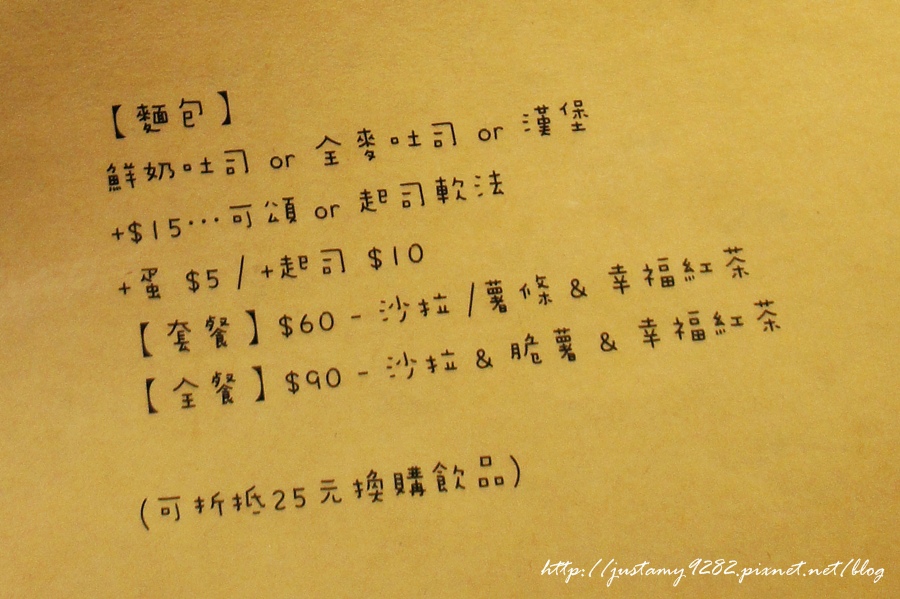 【麵包】
鮮奶吐司 or 全麥吐司 or 漢堡
+$15…可頌 or 起司軟法
+蛋 $5 / +起司 $10
【套餐】$60 - 沙拉 / 薯條 & 幸福紅茶
【全餐】$90 - 沙拉 & 脆薯 & 幸福紅茶
(可折抵25元換購飲品)
http://justamy9282.pixnet.net/blog